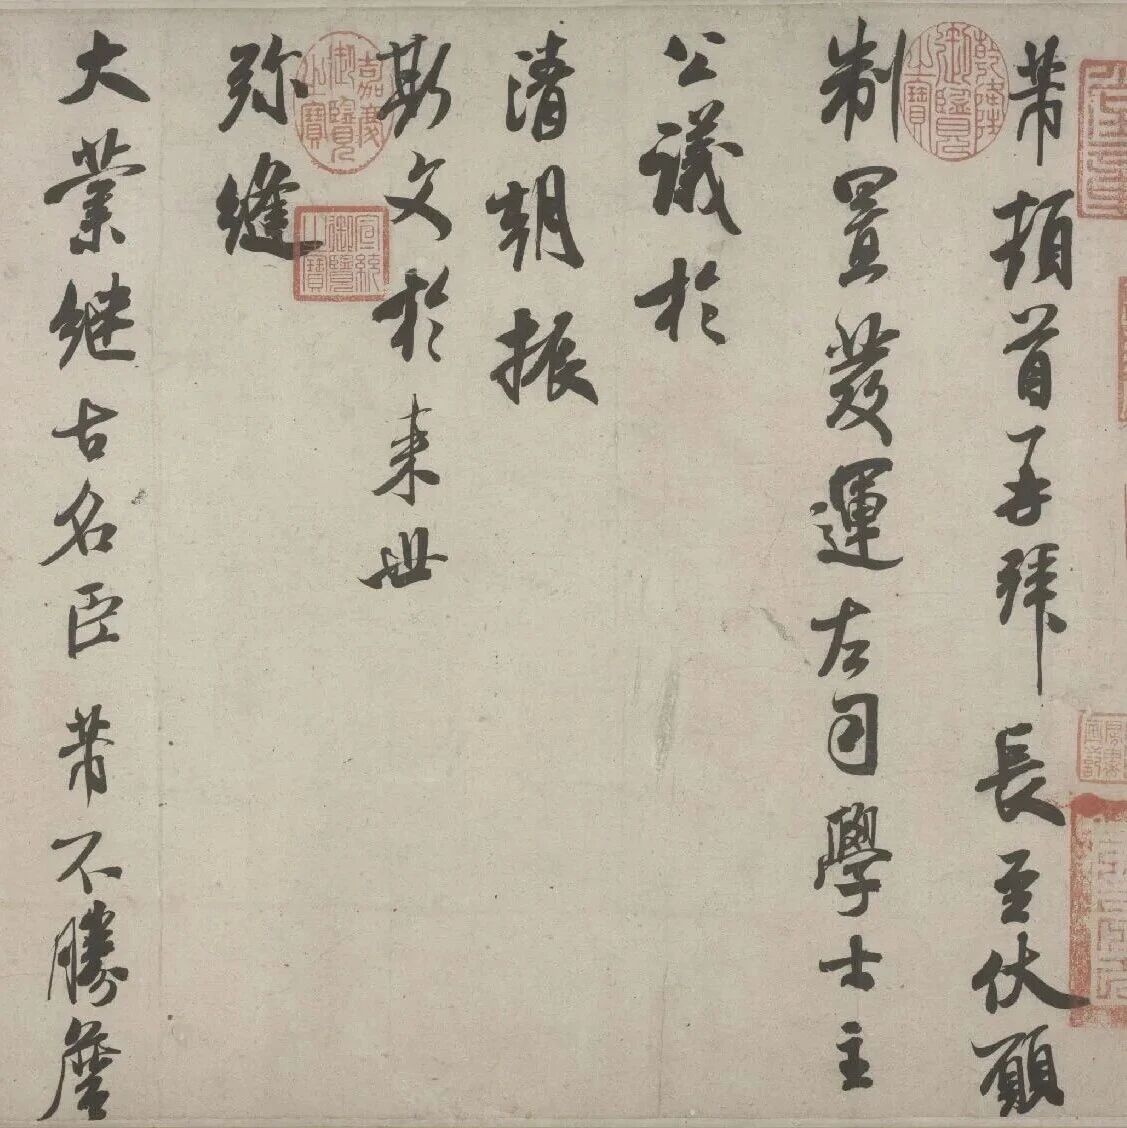 芾頓首再拜長至伏願
制置發運左司學士主
公議於
清朝振
斯文於来世
弥縫
大業継古名臣芾不勝詹
乾隆御覽之寶
嘉慶御覽之寶
宣統御覽之寶